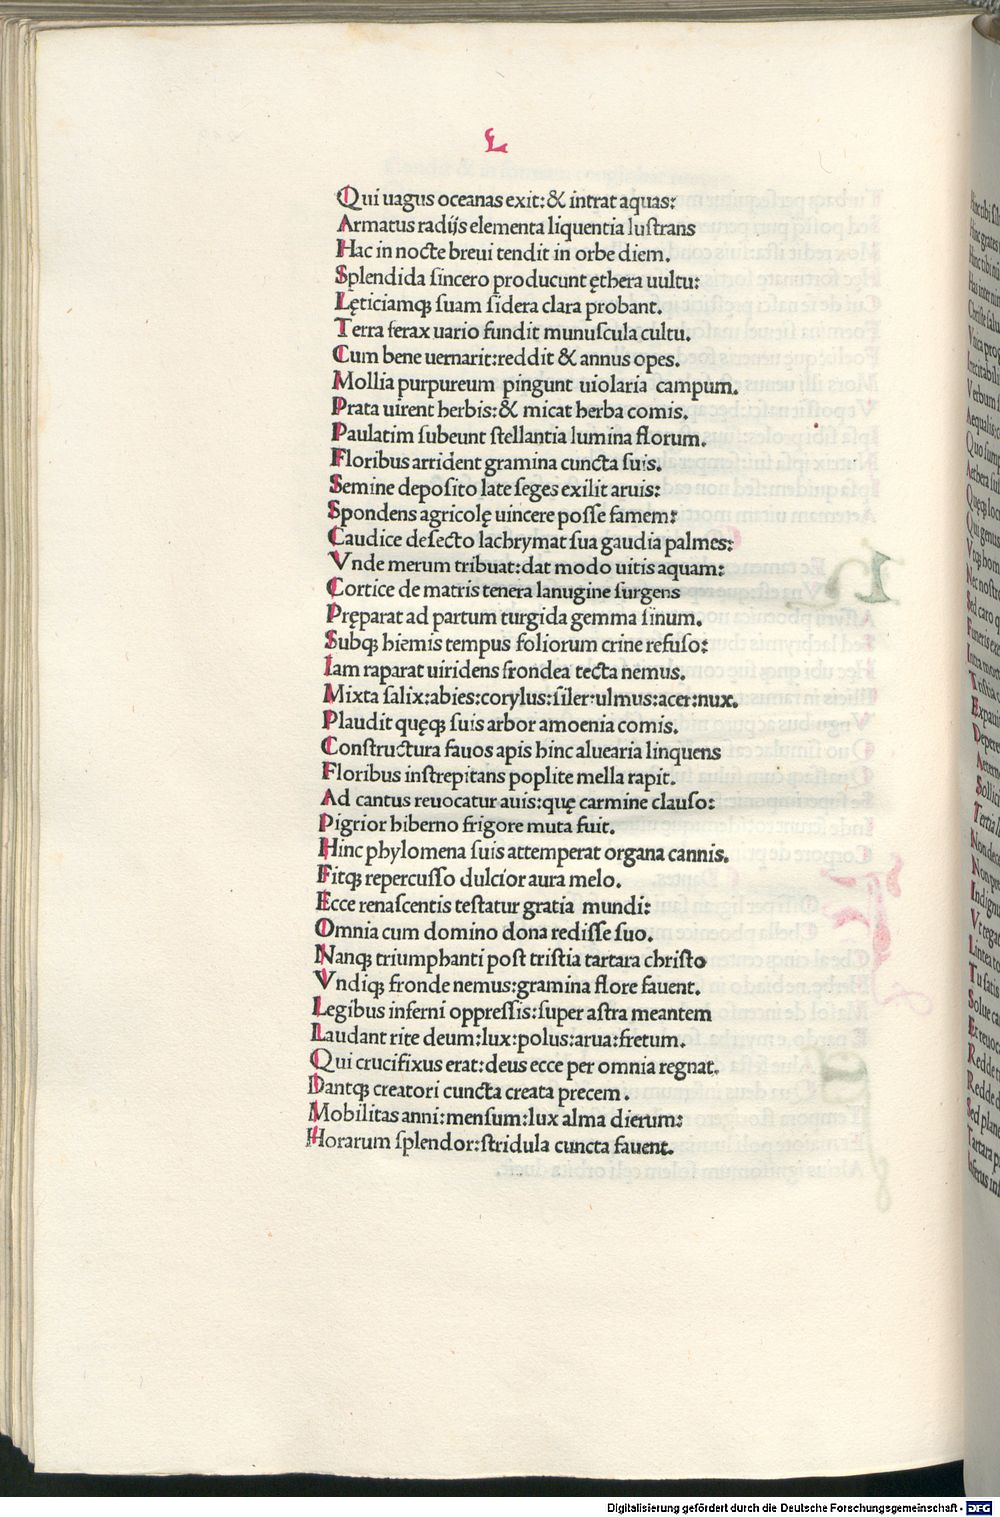 L
Qui uagus oceanas exit: & intrat aquas:
Armatus radijs elementa liquentia lustrans
Hac in nocte breui tendit in orbe diem.
Splendida sincero producunt ęthera uultu:
Lęticiamqꝫ suam sidera clara probant.
Terra ferax uario fundit munuscula cultu.
Cum bene uernarit: reddit & annus opes.
Mollia purpureum pingunt uiolaria campum.
Prata uirent herbis: & micat herba comis.
Paulatim subeunt stellantia lumina florum.
Floribus arrident gramina cuncta suis.
Semine deposito late seges exilit aruis:
Spondens agricolę uincere posse famem:
Caudice desecto lachrymat sua gaudia palmes:
Vnde merum tribuat: dat modo uitis aquam:
Cortice de matris tenera lanugine surgens
Pręparat ad partum turgida gemma sinum.
Subqꝫ hiemis tempus foliorum crine refuso:
Iam raparat uiridens frondea tecta nemus.
Mixta salix: abies: corylus: siler: ulmus: acer: nux.
Plaudit quęqꝫ suis arbor amoenia comis.
Constructura fauos apis hinc aluearia linquens
Floribus instrepitans poplite mella rapit.
Ad cantus reuocatur auis: quę carmine clauso:
Pigrior hiberno frigore muta fuit.
Hinc phylomena suis attemperat organa cannis.
Fitqꝫ repercusso dulcior aura melo.
Ecce renascentis testatur gratia mundi:
Omnia cum domino dona redisse suo.
Nanqꝫ triumphanti post tristia tartara christo
Vndiqꝫ fronde nemus: gramina flore fauent.
Legibus inferni oppressis: super astra meantem
Laudant rite deum: lux: polus: arua: fretum.
Qui crucifixus erat: deus ecce per omnia regnat.
Dantqꝫ creatori cuncta creata precem.
Mobilitas anni: mensum: lux alma dierum:
Horarum splendor: stridula cuncta fauent.
Digitalisierung gefördert durch die Deutsche Forschungsgemeinschaft - DFG